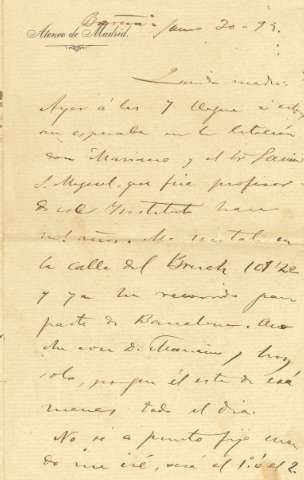 Barna Junio 20-95.
Ateneo de Madrid.
Querida madre:
Ayer á las 7 llegué á esta,
me esperaba en la estación
don Mariano y el Sr
S. Miguel, que fué profesor
de ese Instituto hace
años. Me instalé en
la calle del Bruch 101 2º
y ya he recorrido gran
parte de Barcelona. Ano
che con D. Mariano y hoy
solo, porque él está de exá
menes todo el dia.
No sé a punto fijo cuan
do me iré, será el 1º ó el 2